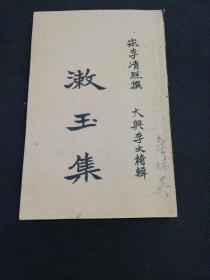 宋李清照撰
大興李文䄎輯
漱玉集